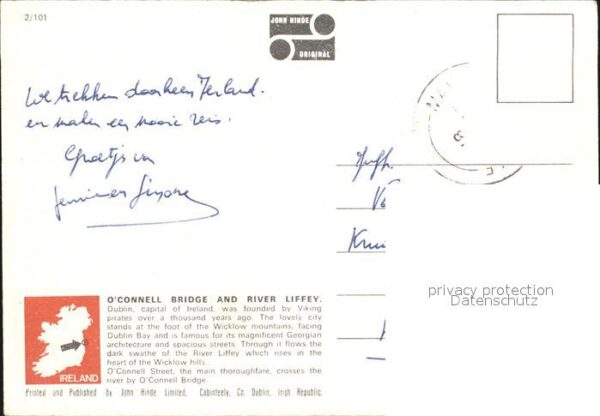 2/101
JOHN HINDE
ORIGINAL
We trekken doorheen Ierland.
en maken een mooie reis.
Groetjes van
Simone
O'CONNELL BRIDGE AND RIVER LIFFEY.
Dublin, capital of Ireland, was founded by Viking
pirates over a thousand years ago. The lovely city
stands at the foot of the Wicklow mountains, facing
Dublin Bay and is famous for its magnificent Georgian
architecture and spacious streets. Through it flows the
dark swathe of the River Liffey which rises in the
heart of the Wicklow hills.
O'Connell Street, the main thoroughfare, crosses the
river by O'Connell Bridge.
IRELAND
Printed and Published by John Hinde Limited, Cabinteely, Co. Dublin, Irish Republic.
privacy protection
Datenschutz